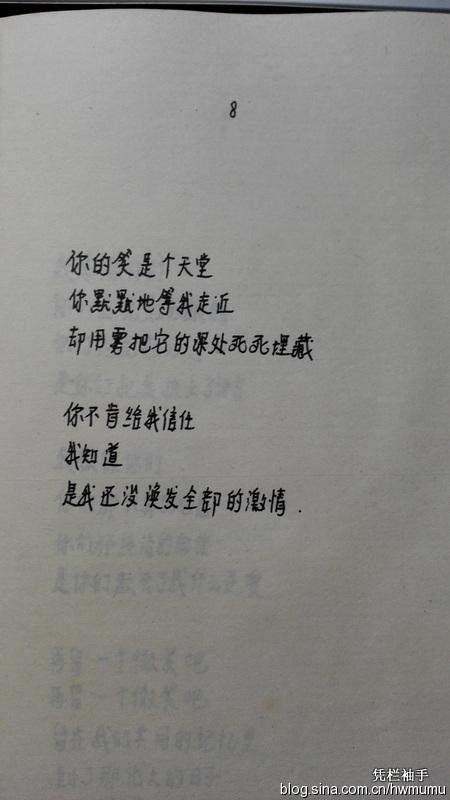 8
你的笑是个天堂
你默默地等我走近
却用雾把它的深处死死埋藏
你不肯给我信任
我知道
是我还没焕发全部的激情.
再留一个微笑吧
再留一个微笑吧
凭栏袖手
blog.sina.com.cn/hwmumu